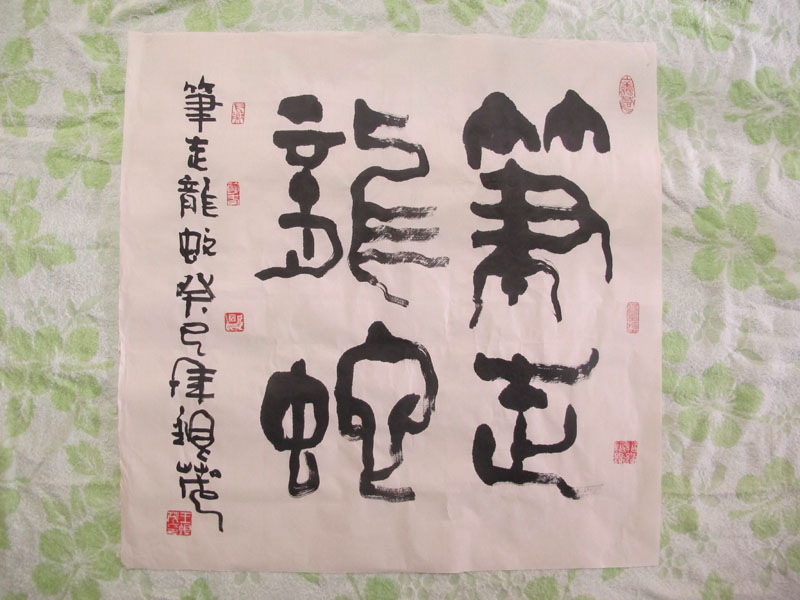 筆走
龍蛇
筆走龍蛇癸巳年